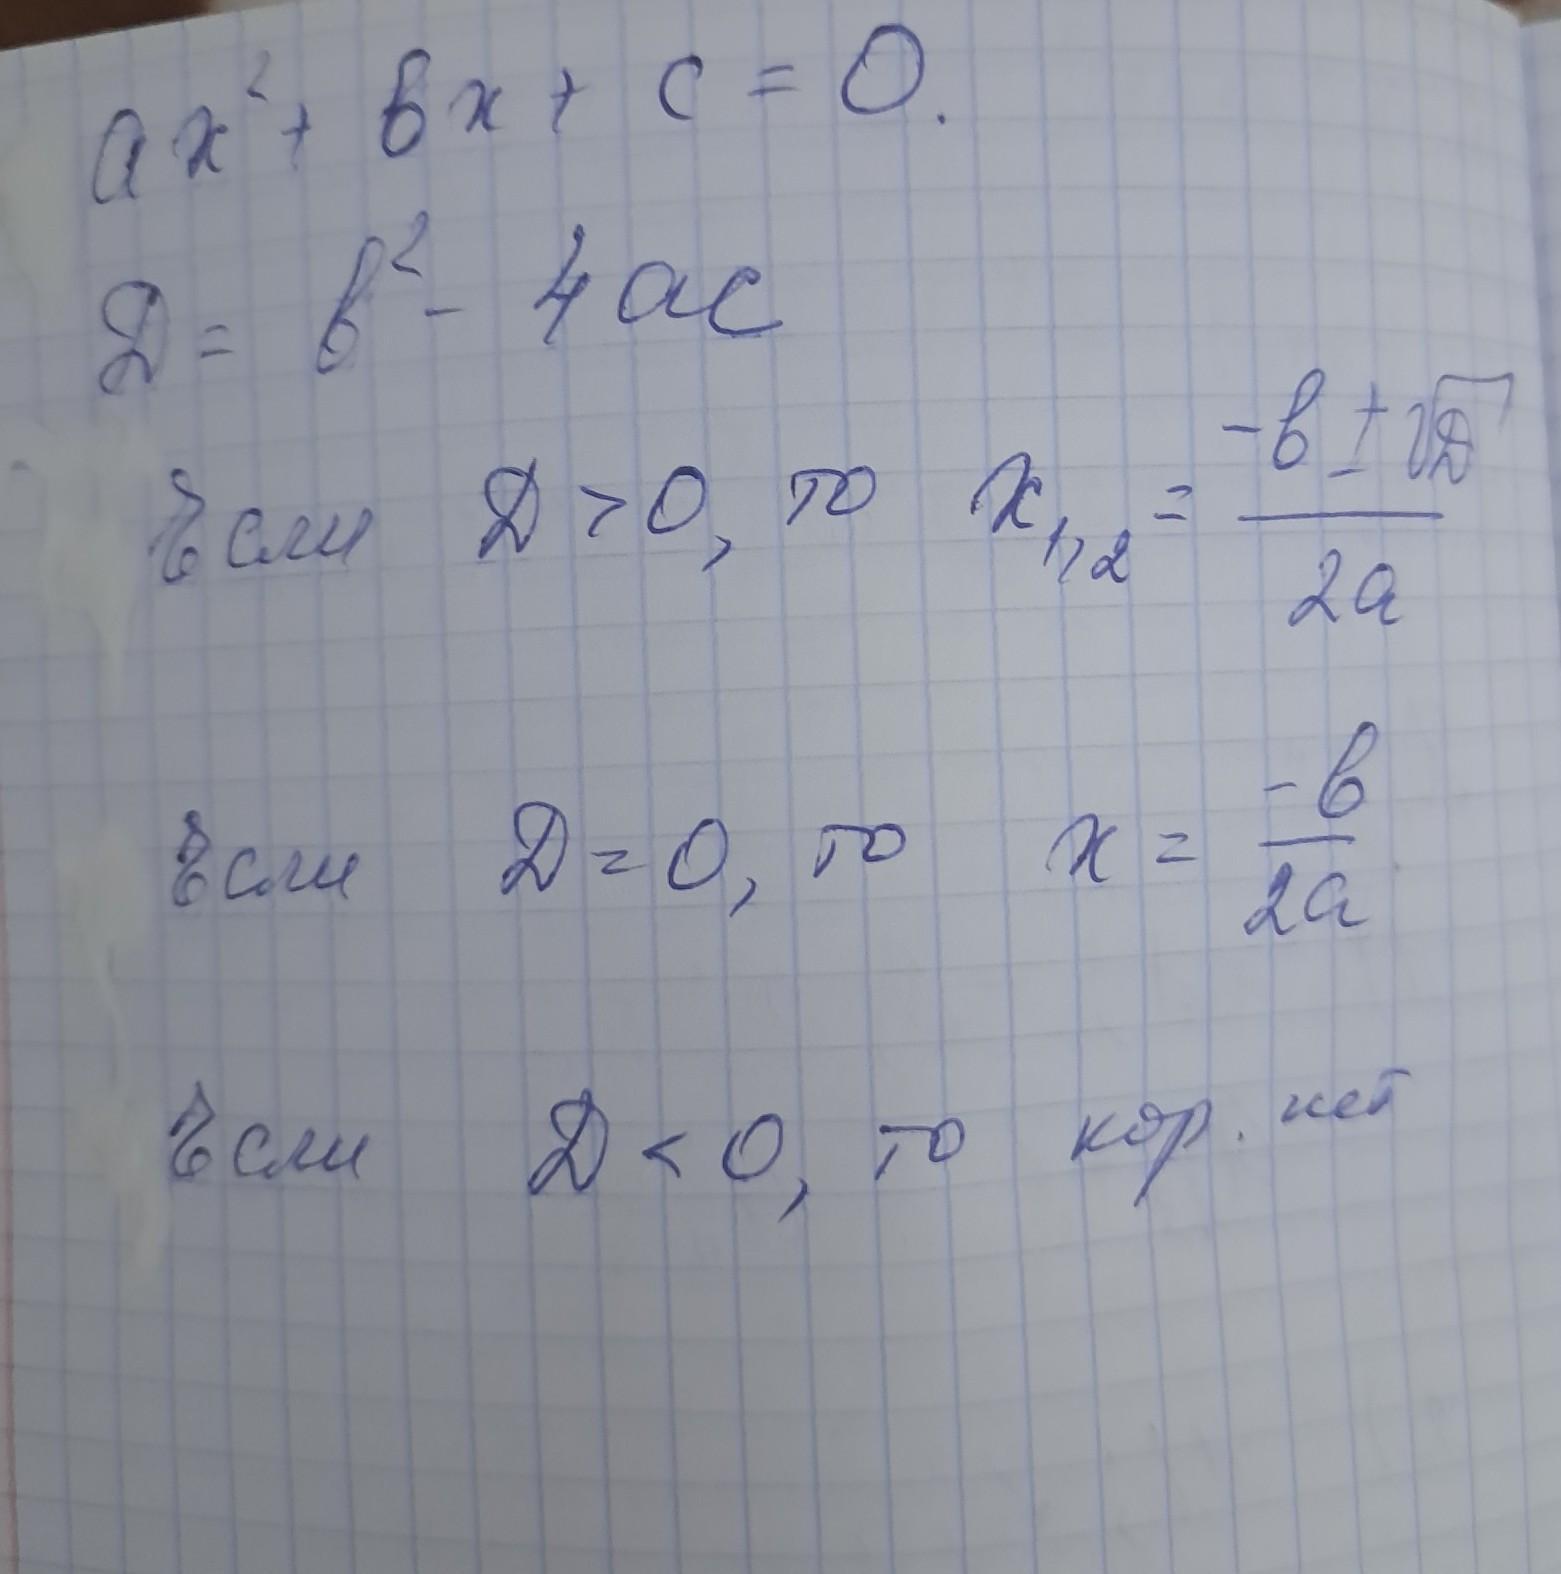 ax² + bx + c = 0.
Д = b² - 4ac
Если Д > 0, то x₁,₂ = (-b ± √Д) / 2a
Если Д = 0, то x = -b / 2a
Если Д < 0, то кор. нет